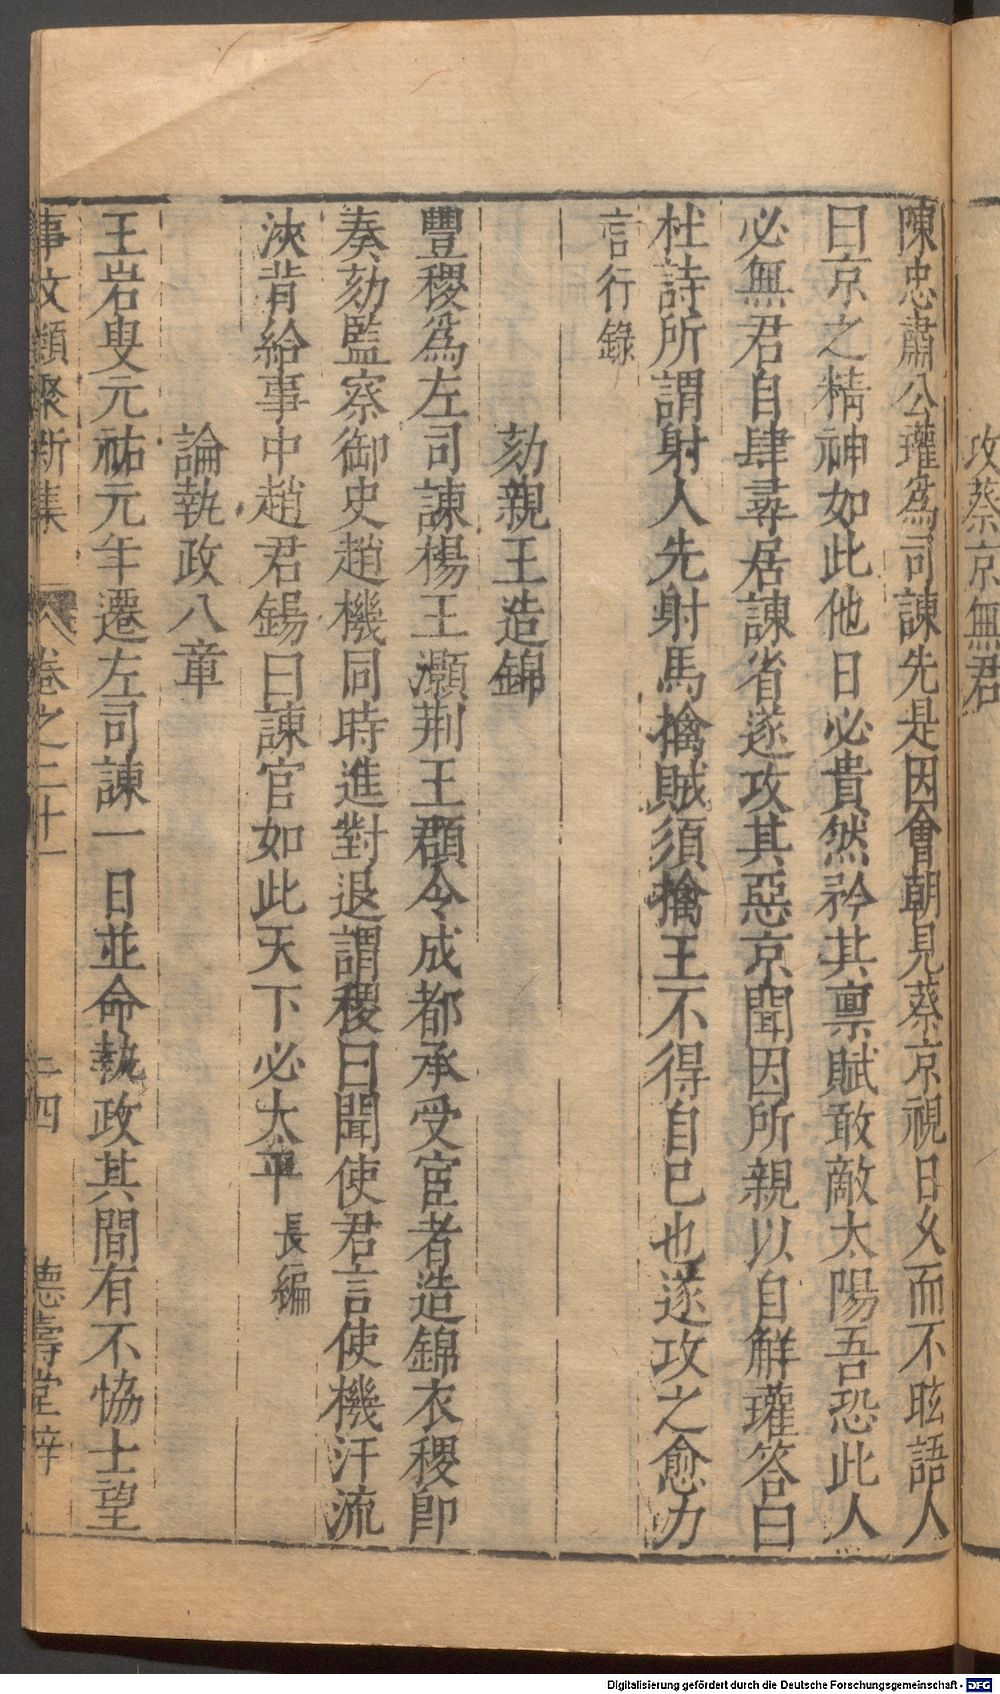 攻蔡京無君
陳忠肅公瓘爲司諫先是因會朝見蔡京視日久而不眩語人
曰京之精神如此他日必貴然矜其禀賦敢敵太陽吾恐此人
必無君自肆尋居諫省遂攻其惡京聞因所親以自解瓘答曰
杜詩所謂射人先射馬擒賊須擒王不得自已也遂攻之愈力
言行錄
劾親王造錦
豐稷爲左司諫楊王灝荆王頵令成都承受宦者造錦衣稷即
奏劾監察御史趙機同時進對退謂稷曰聞使君言使機汗流
浹背給事中趙君錫曰諫官如此天下必太平 長編
論執政八章
王岩叟元祐元年遷左司諫一日並命執政其間有不恊士望
事文類聚新集 卷之二十一 二四 德壽堂梓
Digitalisierung gefördert durch die Deutsche Forschungsgemeinschaft - DFG